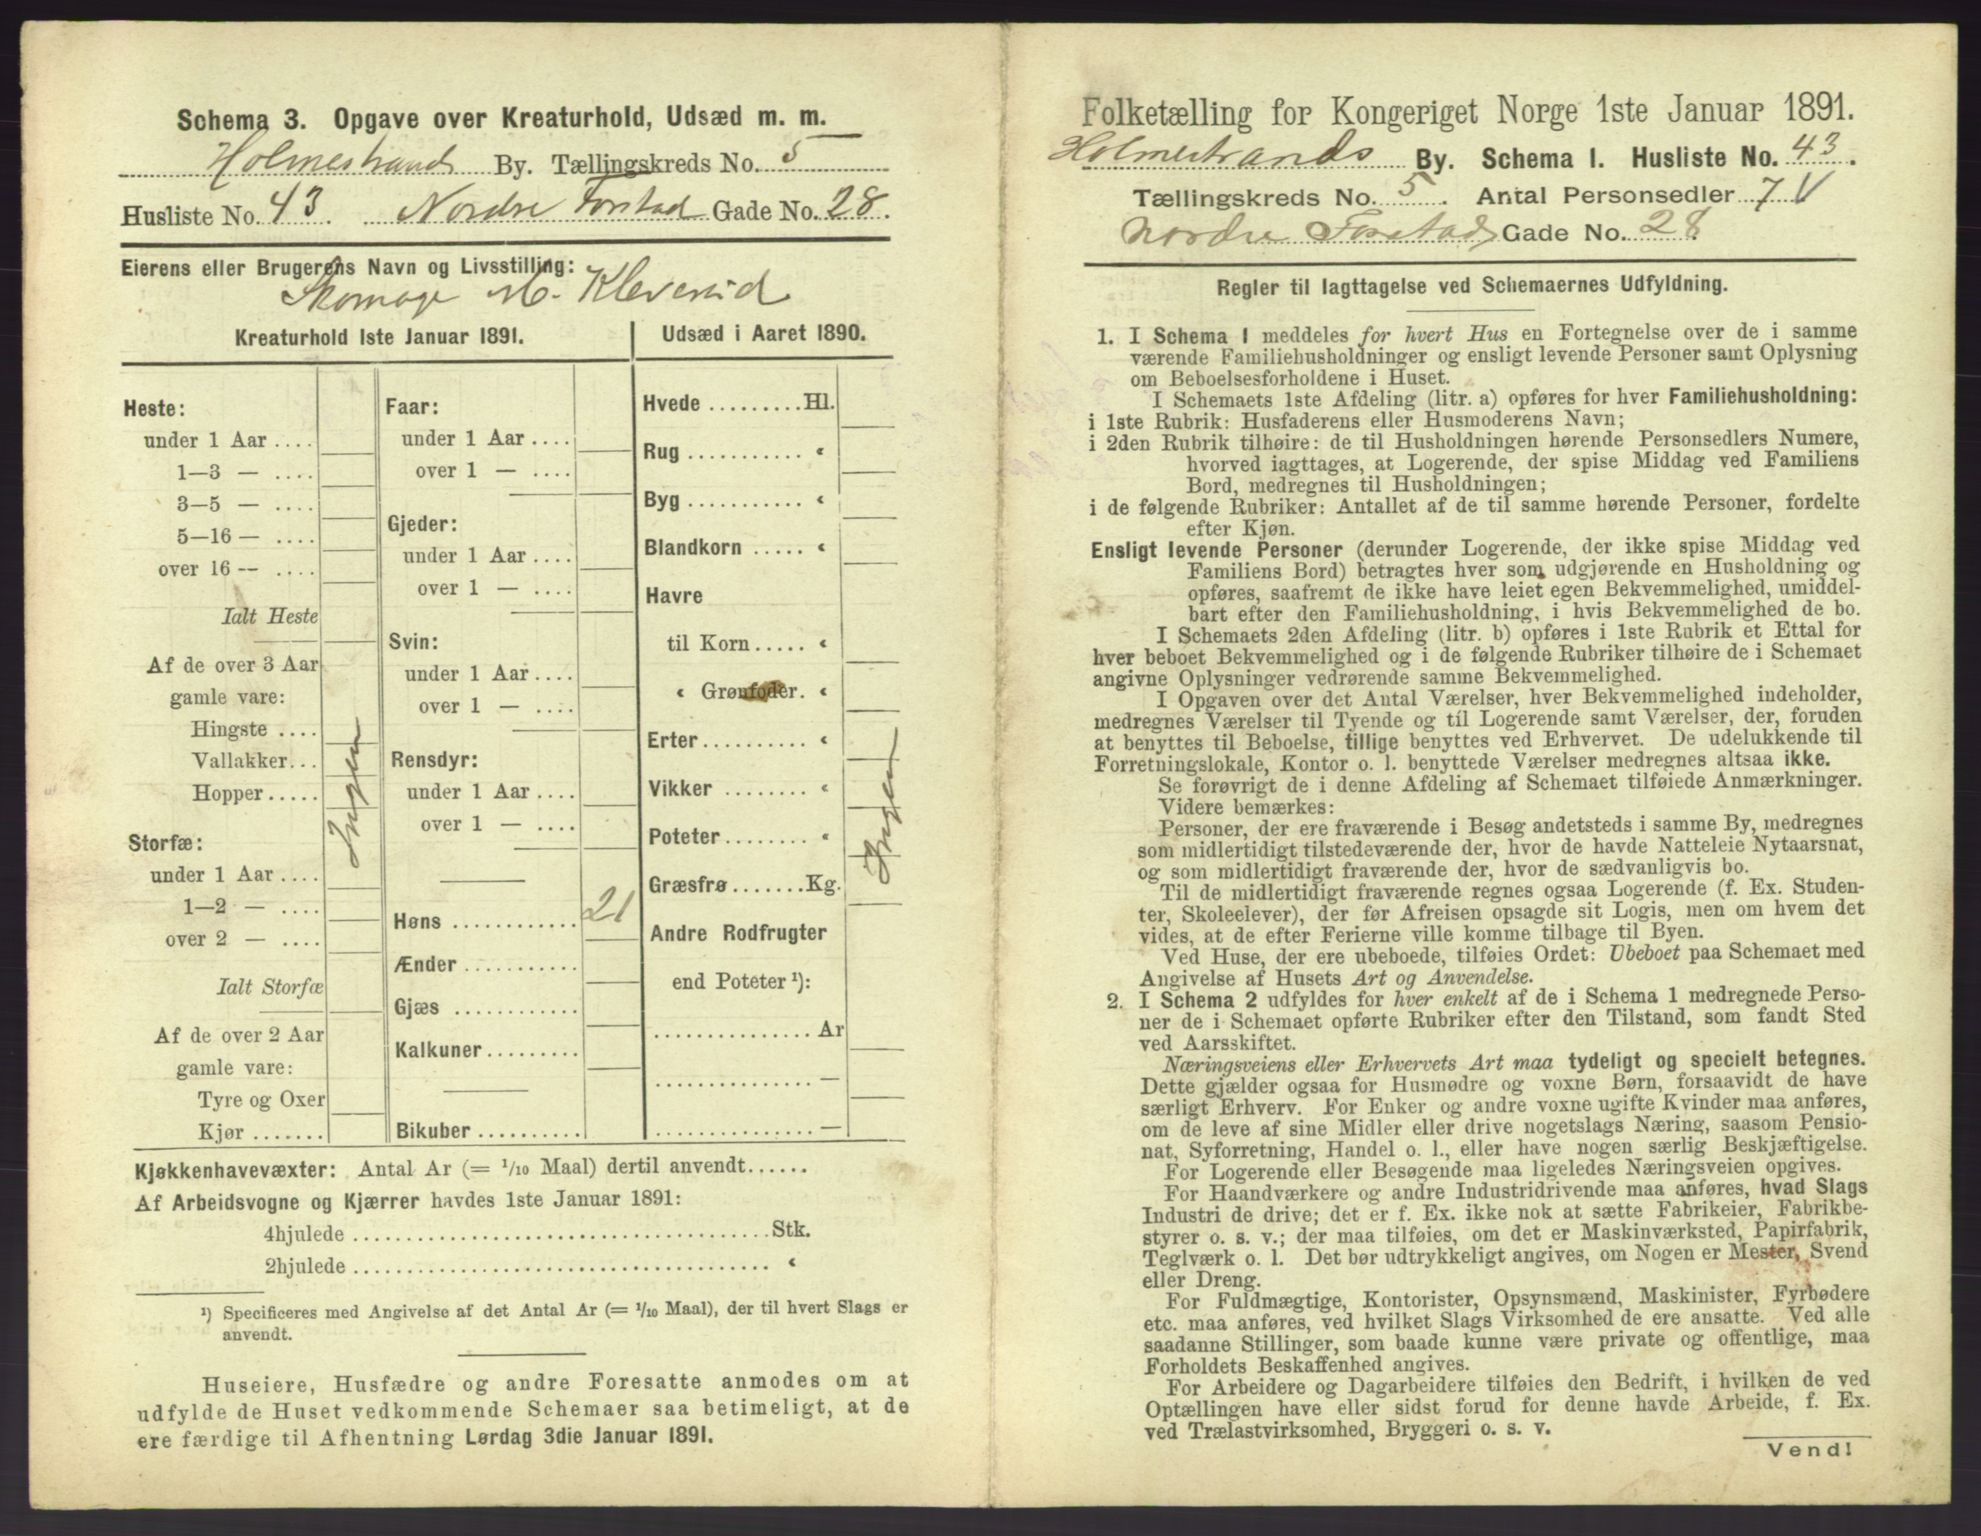 Schema 3. Opgave over Kreaturhold, Udsæd m. m.
Holmestrand By. Tællingskreds No. 5
Husliste No. 43. Nordre Forstad Gade No. 28.
Eierens eller Brugerens Navn og Livsstilling:
Skomager M. Kleverud
Kreaturhold 1ste Januar 1891.
Heste:
under 1 Aar ....
1—3 — ....
3—5 — ....
5—16 — ....
over 16 -- ....
Ialt Heste
Af de over 3 Aar
gamle vare:
Hingste ....
Vallakker...
Hopper.....
Ingen
Storfæ:
under 1 Aar ....
1—2 — ....
over 2 — ....
Ialt Storfæ
Af de over 2 Aar
gamle vare:
Tyre og Oxer
Kjør .......
Faar:
under 1 Aar ....
over 1 — ....
Gjeder:
under 1 Aar ....
over 1 — ....
Svin:
under 1 Aar ....
over 1 — ....
Rensdyr:
under 1 Aar ....
over 1 — ....
Høns ............ 21
Ænder ...........
Gjæs ............
Kalkuner.........
Bikuber ..........
Udsæd i Aaret 1890.
Hvede .........Hl.
Rug ........... "
Byg ........... "
Blandkorn ..... "
Havre
til Korn..... "
" Grønfoder. "
Erter.......... "
Vikker ........ "
Poteter........ "
Græsfrø.......Kg.
Ingen
Andre Rodfrugter
end Poteter ¹):
............... Ar
............... —
............... —
Kjøkkenhavevæxter: Antal Ar (= 1/10 Maal) dertil anvendt......
Af Arbeidsvogne og Kjærrer havdes 1ste Januar 1891:
4hjulede ........................................Stk.
2hjulede ........................................ "
¹) Specificeres med Angivelse af det Antal Ar (= 1/10 Maal), der til hvert Slags er
anvendt.
Huseiere, Husfædre og andre Foresatte anmodes om at
udfylde de Huset vedkommende Schemaer saa betimeligt, at de
ere færdige til Afhentning Lørdag 3die Januar 1891.
Folketælling for Kongeriget Norge 1ste Januar 1891.
Holmestrands By. Schema 1. Husliste No. 43.
Tællingskreds No. 5. Antal Personsedler 7 V
Nordre Forstad Gade No. 28.
Regler til Iagttagelse ved Schemaernes Udfyldning.
1. I Schema 1 meddeles for hvert Hus en Fortegnelse over de i samme
værende Familiehusholdninger og ensligt levende Personer samt Oplysning
om Beboelsesforholdene i Huset.
I Schemaets 1ste Afdeling (litr. a) opføres for hver Familiehusholdning:
i 1ste Rubrik: Husfaderens eller Husmoderens Navn;
i 2den Rubrik tilhøire: de til Husholdningen hørende Personsedlers Numere,
hvorved iagttages, at Logerende, der spise Middag ved Familiens
Bord, medregnes til Husholdningen;
i de følgende Rubriker: Antallet af de til samme hørende Personer, fordelte
efter Kjøn.
Ensligt levende Personer (derunder Logerende, der ikke spise Middag ved
Familiens Bord) betragtes hver som udgjørende en Husholdning og
opføres, saafremt de ikke have leiet egen Bekvemmelighed, umiddel-
bart efter den Familiehusholdning, i hvis Bekvemmelighed de bo.
I Schemaets 2den Afdeling (litr. b) opføres i 1ste Rubrik et Ettal for
hver beboet Bekvemmelighed og i de følgende Rubriker tilhøire de i Schemaet
angivne Oplysninger vedrørende samme Bekvemmelighed.
I Opgaven over det Antal Værelser, hver Bekvemmelighed indeholder,
medregnes Værelser til Tyende og til Logerende samt Værelser, der, foruden
at benyttes til Beboelse, tillige benyttes ved Erhvervet. De udelukkende til
Forretningslokale, Kontor o. l. benyttede Værelser medregnes altsaa ikke.
Se forøvrigt de i denne Afdeling af Schemaet tilføiede Anmærkninger.
Videre bemærkes:
Personer, der ere fraværende i Besøg andetsteds i samme By, medregnes
som midlertidigt tilstedeværende der, hvor de havde Natteleie Nytaarsnat,
og som midlertidigt fraværende der, hvor de sædvanligvis bo.
Til de midlertidigt fraværende regnes ogsaa Logerende (f. Ex. Studen-
ter, Skoleelever), der før Afreisen opsagde sit Logis, men om hvem det
vides, at de efter Ferierne ville komme tilbage til Byen.
Ved Huse, der ere ubeboede, tilføies Ordet: Ubeboet paa Schemaet med
Angivelse af Husets Art og Anvendelse.
2. I Schema 2 udfyldes for hver enkelt af de i Schema 1 medregnede Perso-
ner de i Schemaet opførte Rubriker efter den Tilstand, som fandt Sted
ved Aarsskiftet.
Næringsveiens eller Erhvervets Art maa tydeligt og specielt betegnes.
Dette gjælder ogsaa for Husmødre og voxne Børn, forsaavidt de have
særligt Erhverv. For Enker og andre voxne ugifte Kvinder maa anføres,
om de leve af sine Midler eller drive nogetslags Næring, saasom Pensio-
nat, Syforretning, Handel o. l., eller have nogen særlig Beskjæftigelse.
For Logerende eller Besøgende maa ligeledes Næringsveien opgives.
For Haandværkere og andre Industridrivende maa anføres, hvad Slags
Industri de drive; det er f. Ex. ikke nok at sætte Fabrikeier, Fabrikbe-
styrer o. s. v.; der maa tilføies, om det er Maskinværksted, Papirfabrik,
Teglværk o. l. Det bør udtrykkeligt angives, om Nogen er Mester, Svend
eller Dreng.
For Fuldmægtige, Kontorister, Opsynsmænd, Maskinister, Fyrbødere
etc. maa anføres, ved hvilket Slags Virksomhed de ere ansatte. Ved alle
saadanne Stillinger, som baade kunne være private og offentlige, maa
Forholdets Beskaffenhed angives.
For Arbeidere og Dagarbeidere tilføies den Bedrift, i hvilken de ved
Optællingen have eller sidst forud for denne havde Arbeide, f. Ex.
ved Trælastvirksomhed, Bryggeri o. s. v.
Vend!